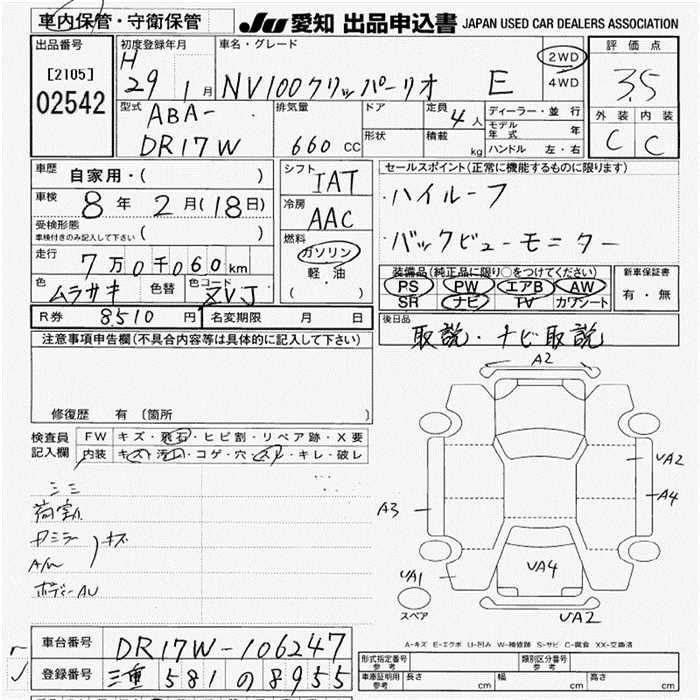 車内保管・守衛保管
JU 愛知 出品申込書 JAPAN USED CAR DEALERS ASSOCIATION
出品番号
[2105]
02542
初度登録年月
H
29 1月
車名・グレード
NV100クリッパーリオ E
2WD
4WD
評価点
3.5
外装 内装
C C
型式
ABA-
DR17W
排気量
660 CC
ドア
形状
定員 4人
積載 kg
ディーラー・並行
モデル年式 年
ハンドル 左・右
車歴
自家用・( )
車検
8年 2月(18日)
受検形態
車検付きのみ記入して下さい ( )
走行
7万0千060km
色
ムラサキ
色替
色コード
ZVJ
シフト
IAT
冷房
AAC
燃料
ガソリン
軽・油
( )
セールスポイント(正常に機能するものに限ります)
・ハイルーフ
・バックビューモニター
装備品(純正品に限り○をつけてください)
PS PW エアB AW
SR ナビ TV カワシート
新車保証書
有・無
R券 8510円
名変期限 月 日
後日品
取説・ナビ取説
注意事項申告欄(不具合内容等は具体的に記入して下さい)
修復歴 有 〔箇所 〕
検査員
記入欄
FW キズ・飛石・ヒビ割・リペア跡・X要
内装 キズ・汚れ・コゲ・穴・スレ・キレ・破レ
荷室
キズ
A/W
ボディーAU
A2
UA2
A4
A3
UA4
UA1
スペア
UA2
A-キズ E-エクボ U-凹み W-補修跡 S-サビ C-腐食 XX-交換済
車台番号
DR17W-106247
登録番号
三重 581 の 8955
形式指定番号
参考
類別区分番号
参考
車庫証明用
参考
長さ cm
幅 cm
高さ cm